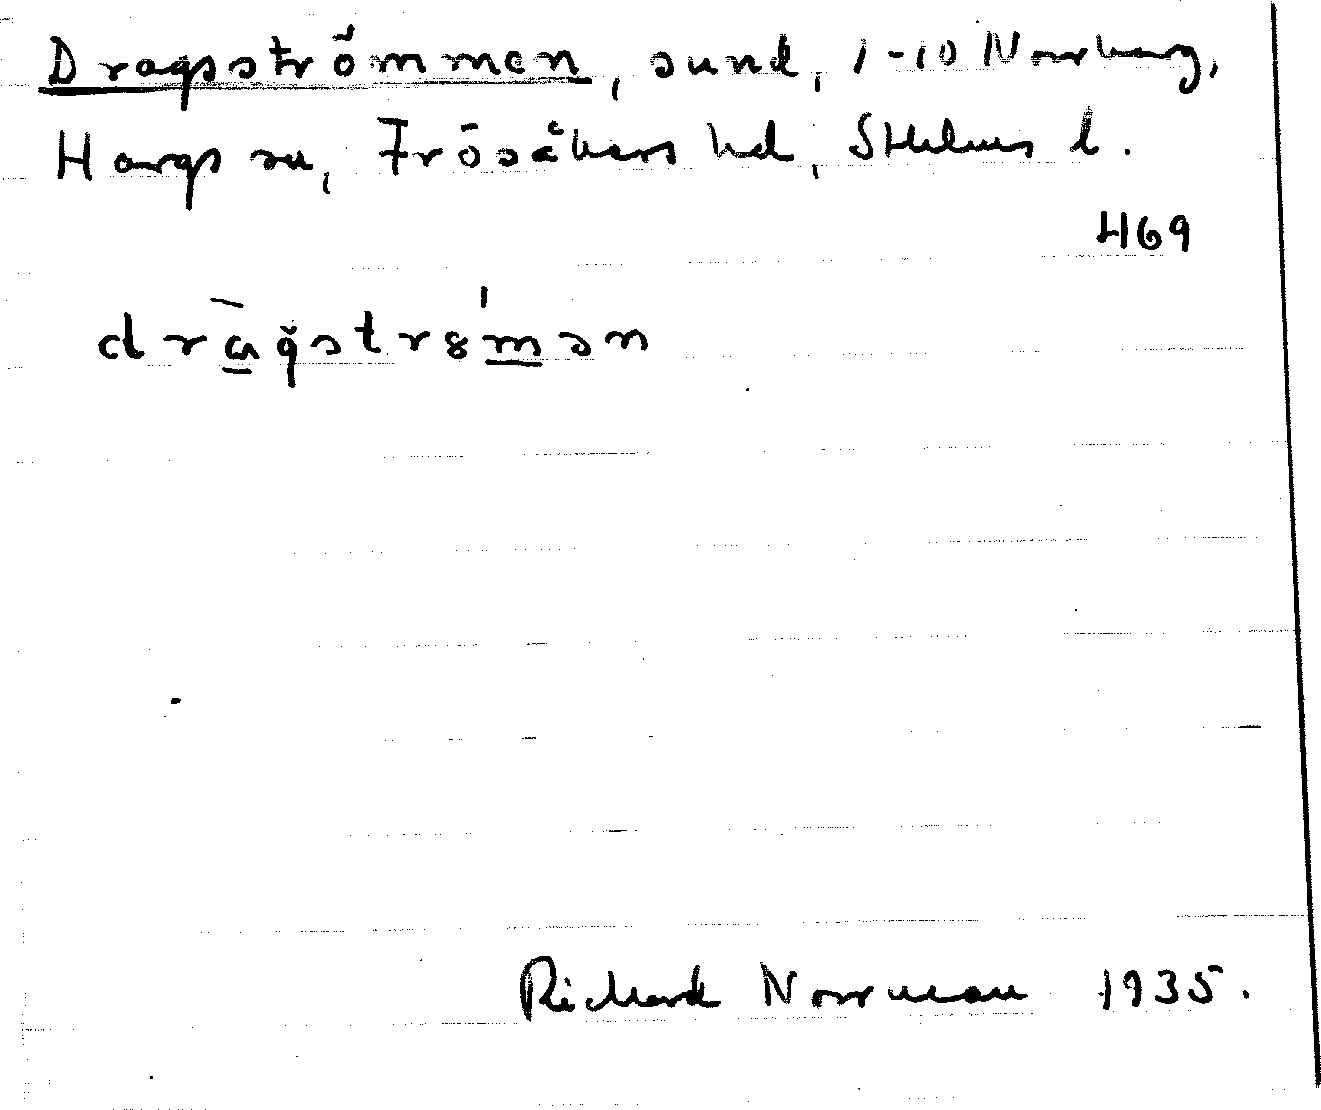 Dragsströmmen, sund, 1-10 Norrharg,
Hargs sn, Frösåkers hd, Sthlms l.
469
dràǧstrø̀mən
Richard Norrman 1935.